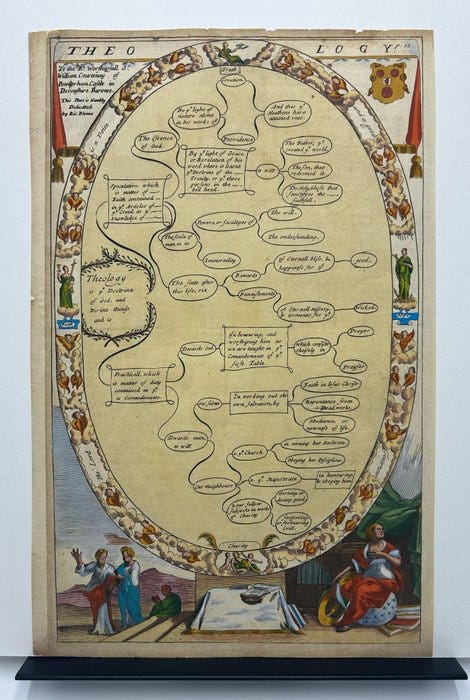 THEOLOGY
To the Rt. worshipfull Sr.
William Courtenay of
Powderham Castle in
Devonshire Baronet.
This Plate is Humbly
Dedicated
by Ric: Blome
Truth
Creation
By ye light of
nature alone
in his works of
And this ye
Heathens have
attained unto.
Providence
The Essence
of God.
By ye light of Grace
or Revelation of his
word where is learnt
ye Doctrine of the
Trinity, or ye three
persons in the
God head.
to witt
The Father, yt
created ye world.
The Son, that
redeemed it.
The Holy Ghost that
sanctifyes the
faithfull.
Speculative which
is matter of
Faith contained
in ye Articles of
ye Creed, as ye
knowledge of
The soule of
man in its
Powers, or faculties of
The will.
The understanding.
Immortality.
The state after
this life, viz
Rewards
of Eternall bliss, &
happiness for ye
good.
Punishments
of Eternall misery, &
torments for ye
Wicked.
Theology
is ye Doctrine
of God, and
Divine things
and is
Practicall, which
is matter of duty
contained in ye
10 Comandements.
Towards God
In honouring, and
worshiping him as
we are taught in ye
Comandements of ye
first Table.
which consists
cheifely in
Prayer
Prayses
Towards men,
to witt
our selves
In working out our
own salvation, by
Faith in Jesus Christ.
Repentance from
Dead works.
Obedience, or
newness of life.
Our Neighbours
ye Church
in owning her Doctrine.
Obeying her Discipline.
ye Majestrate
in honouring,
& obeying him
our fellow
subjects in works
of Charity
Giveing, or
doing good
forgiveing,
or forbearing
Evill.
Faith
Charity